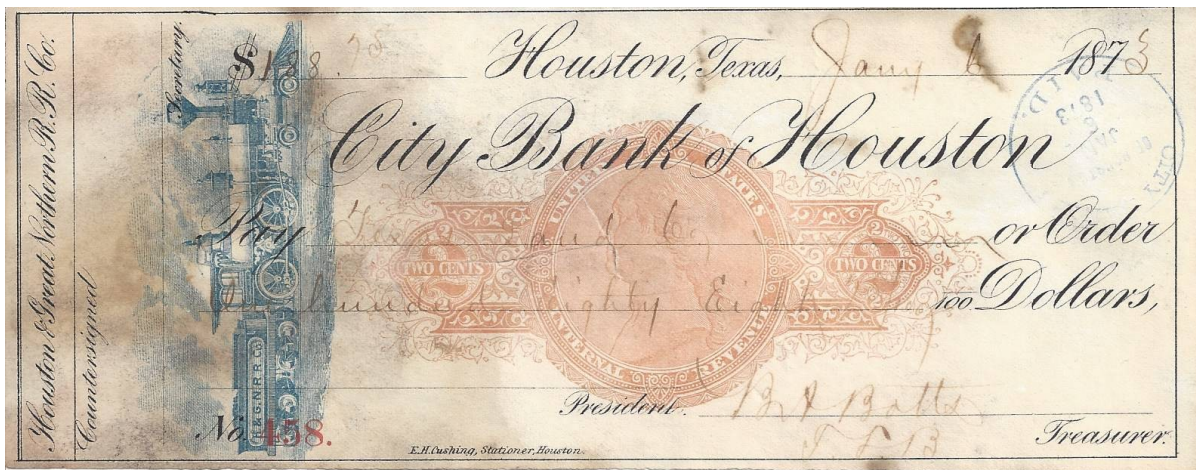 Houston & Great Northern R. R. Co.
Countersigned
Secretary.
$ 188.75
Houston, Texas, Jany 6 1873
City Bank of Houston
Pay or Order
hundred Eighty Eight 100 Dollars,
UNITED STATES
INTERNAL REVENUE
2 TWO CENTS
2 TWO CENTS
H. & G. N. R. R. Co.
No. 458.
President.
B A Botts
Treasurer.
E. H. Cushing, Stationer, Houston.
PAID
1873
CITY